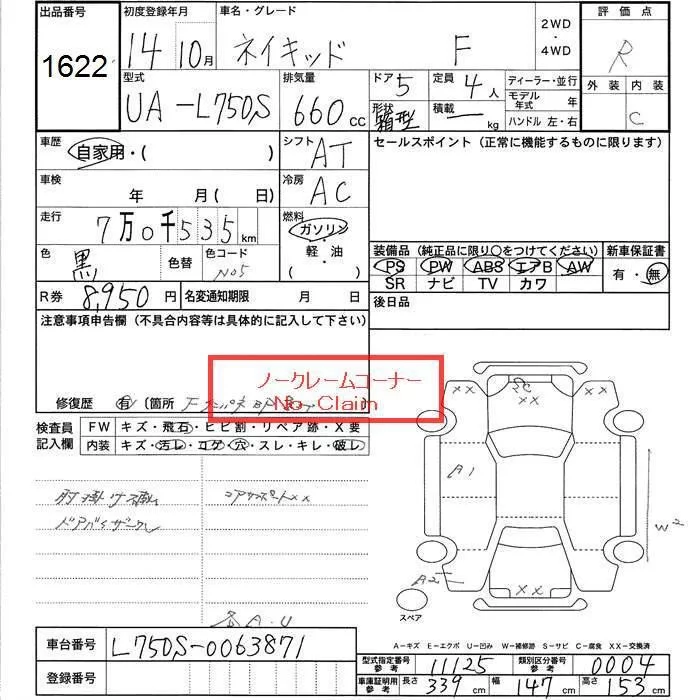 出品番号 初度登録年月 車名・グレード 評価点
1622 14年10月 ネイキッド F 2WD・4WD R
型式 排気量 ドア 定員 ディーラー・並行 外装 内装
UA-L750S 660cc 5 4人 モデル年式 年 C
形状 箱型 積載 kg ハンドル 左・右
車歴 自家用・( ) シフト AT セールスポイント(正常に機能するものに限ります)
車検 年 月(日) 冷房 AC
走行 7万0千535km 燃料 ガソリン・軽・油( )
色 黒 色替 色コード N05
装備品(純正品に限り○をつけてください) 新車保証書
PS PW ABS エアB AW 有・無
SR ナビ TV カワ
R券 8,950円 名変通知期限 月 日 後日品
注意事項申告欄(不具合内容等は具体的に記入して下さい)
ノークレームコーナー
No-Claim
修復歴 有 〔箇所
検査員記入欄 FW キズ・飛石・ヒビ割・リペア跡・X要
内装 キズ・汚レ・コゲ・穴・スレ・キレ・破レ
コアサポートXX
各A.U
XX SC XX
XX
A1
W2
A2
XX
スペア
A-キズ E-エクボ U-凹み W-補修跡 S-サビ C-腐食 XX-交換済
車台番号 L750S-0063871
型式指定番号 参考 11125 類別区分番号 参考 0004
登録番号
車庫証明用 参考 長さ 339cm 幅 147cm 高さ 153cm